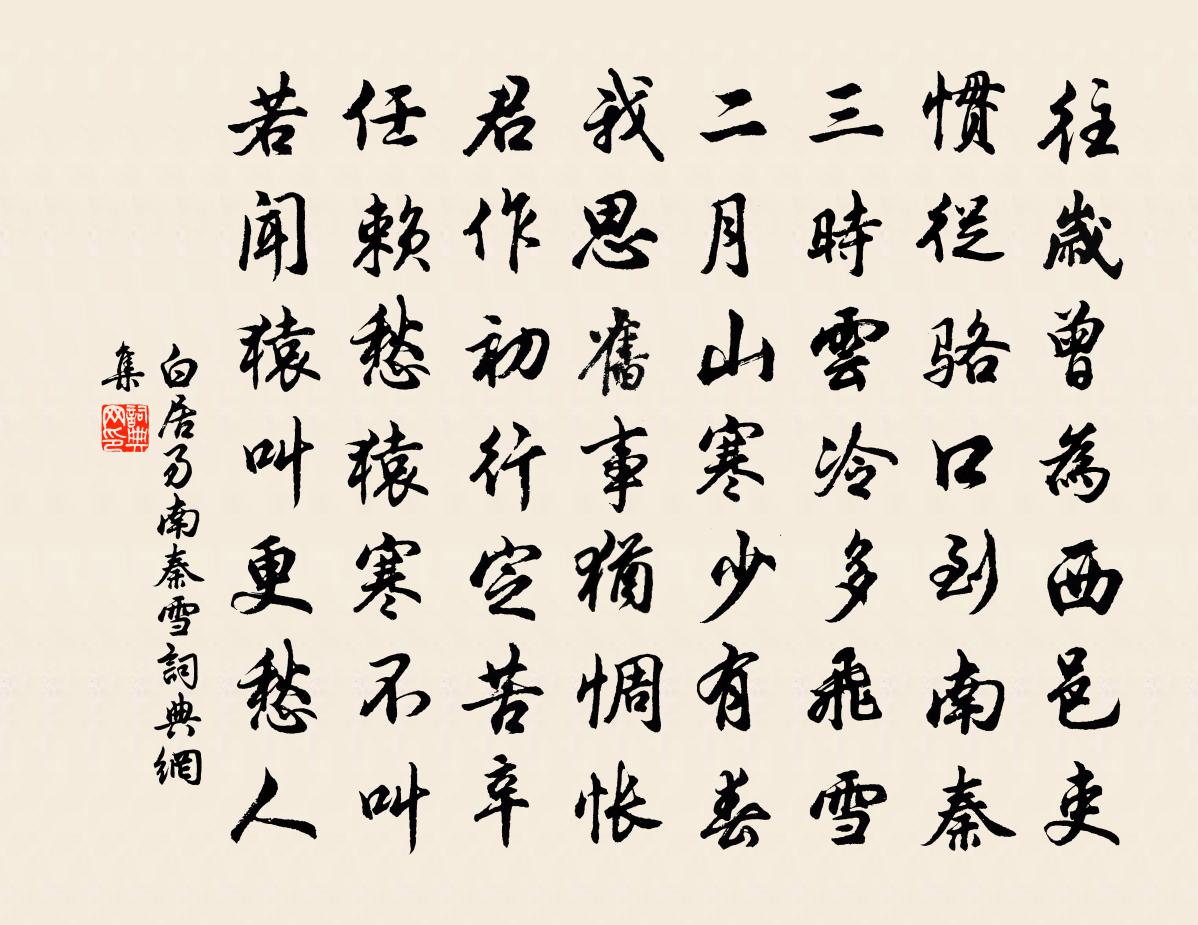 往歲曾為西邑吏
慣從骆口到南秦
三時雲冷多飛雪
二月山寒少有春
我思舊事猶惆怅
君作初行定苦辛
任赖愁猿寒不叫
若闻猿叫更愁人
白居易南秦雪詞典網
集
詞典
网印